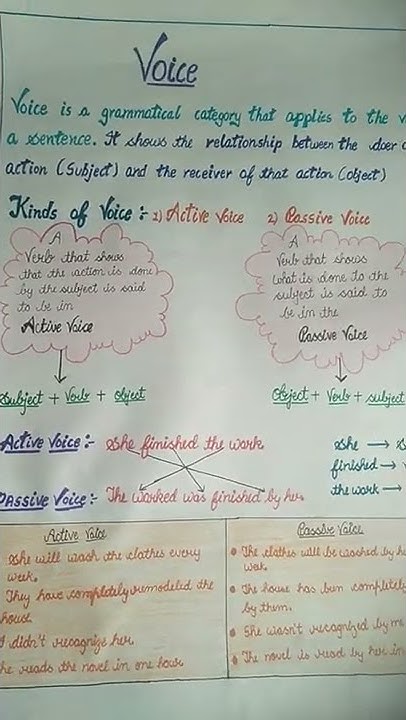 Voice
Voice is a grammatical category that applies to the
a sentence. It shows the relationship between the doer
action (Subject) and the receiver of that action (object)
Kinds of Voice :- 1) Active Voice 2) Passive Voice
A
Verb that shows
that the action is done
by the subject is said
to be in
Active Voice
A
Verb that shows
what is done to the
subject is said to
be in the
Passive Voice
Subject + Verb + object
Object + Verb + subject
Active Voice :- She finished the work
She →
finished →
the work →
Passive Voice :- The worked was finished by her
Active Voice
She will wash the clothes every
week.
They have completely remodeled the
house.
I didn't recognize her
he reads the novel in one hour
Passive Voice
• The clothes will be washed by he
wek.
• The house has been completely
by them.
• She wasn't recognized by me
• The novel is read by her in